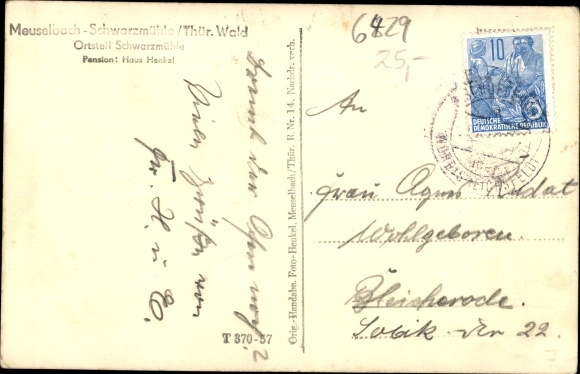 Meuselbach-Schwarzmühle/Thür. Wald
Ortsteil Schwarzmühle
Pension: Haus Henkel
6429
25,-
10
DEUTSCHE
DEMOKRATISCHE REPUBLIK
Brennt der Ofen noch?
Viele Grüße von
Fr. H. u. E.
T 370-57
Orig.-Handabz. Foto-Henkel, Meuselbach/Thür. R. Nr. 14. Nachdr. verb.
An
Frau Agnes
Wohlgeboren.
Bleicherode.
22.